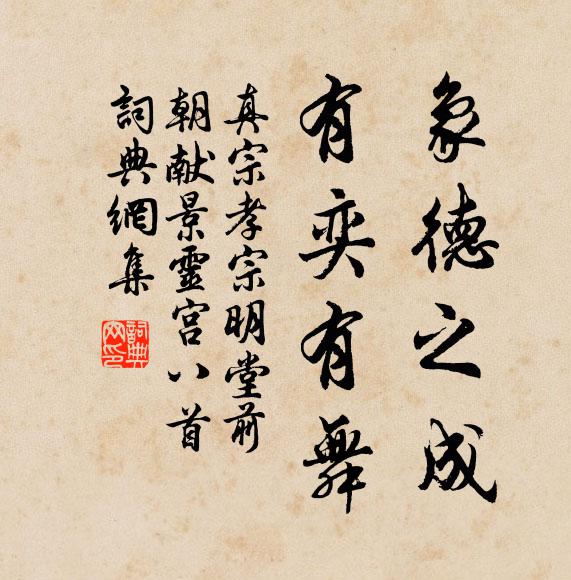 象德之成
有奕有舞
真宗孝宗明堂前
朝献景靈宮八首
詞典網集
詞典网印